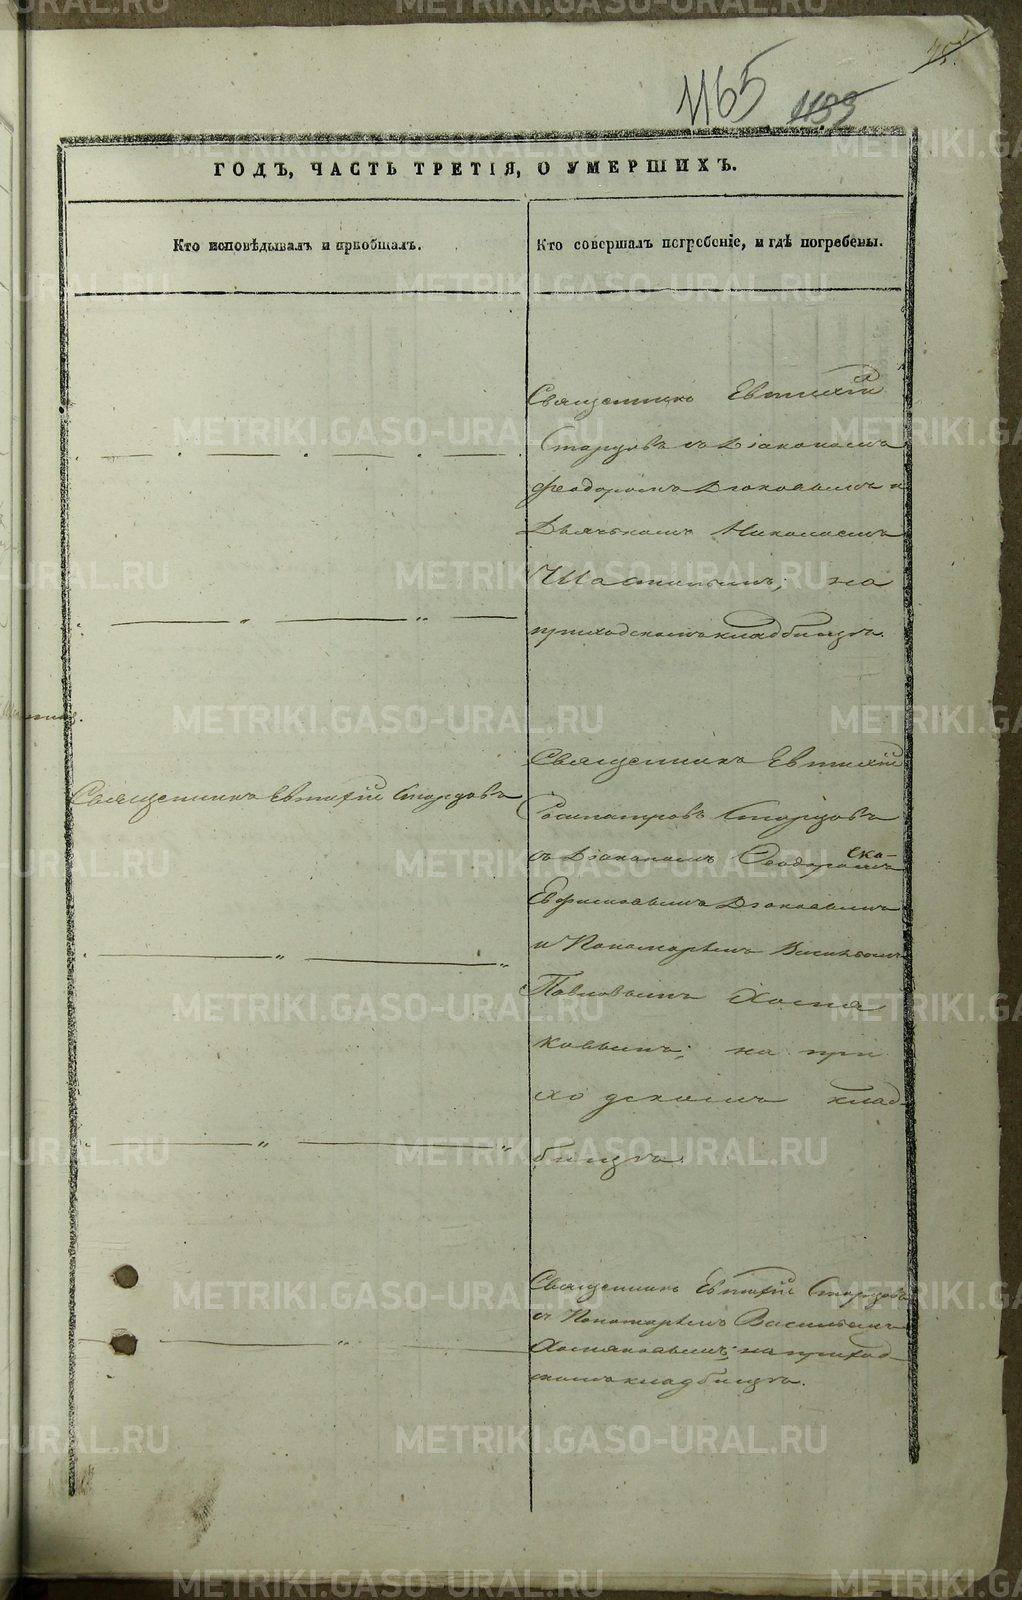 1165 1133
ГОДЪ, ЧАСТЬ ТРЕТІЯ, О УМЕРШИХЪ.
Кто исповѣдывалъ и пріобщалъ.
Кто совершалъ погребеніе, и гдѣ погребены.
Священникъ Евтихій
Старцовъ съ Діакономъ
Феодоромъ Діаковымъ и
Дьячькомъ Николаемъ
на
приходскомъ кладбищѣ.
Священникъ Евтихій Старцовъ
Священникъ Евтихій
Старцовъ
съ Діакономъ Феодоромъ
Діаковымъ
и Пономаремъ Василіемъ
Павловымъ Хомя
ковымъ; на при
ходскомъ клад-
бищѣ.
Священникъ Евтихій Старцовъ
съ Пономаремъ Василіемъ
Хомяковымъ; на приход-
скомъ кладбищѣ.
METRIKI.GASO-URAL.RU